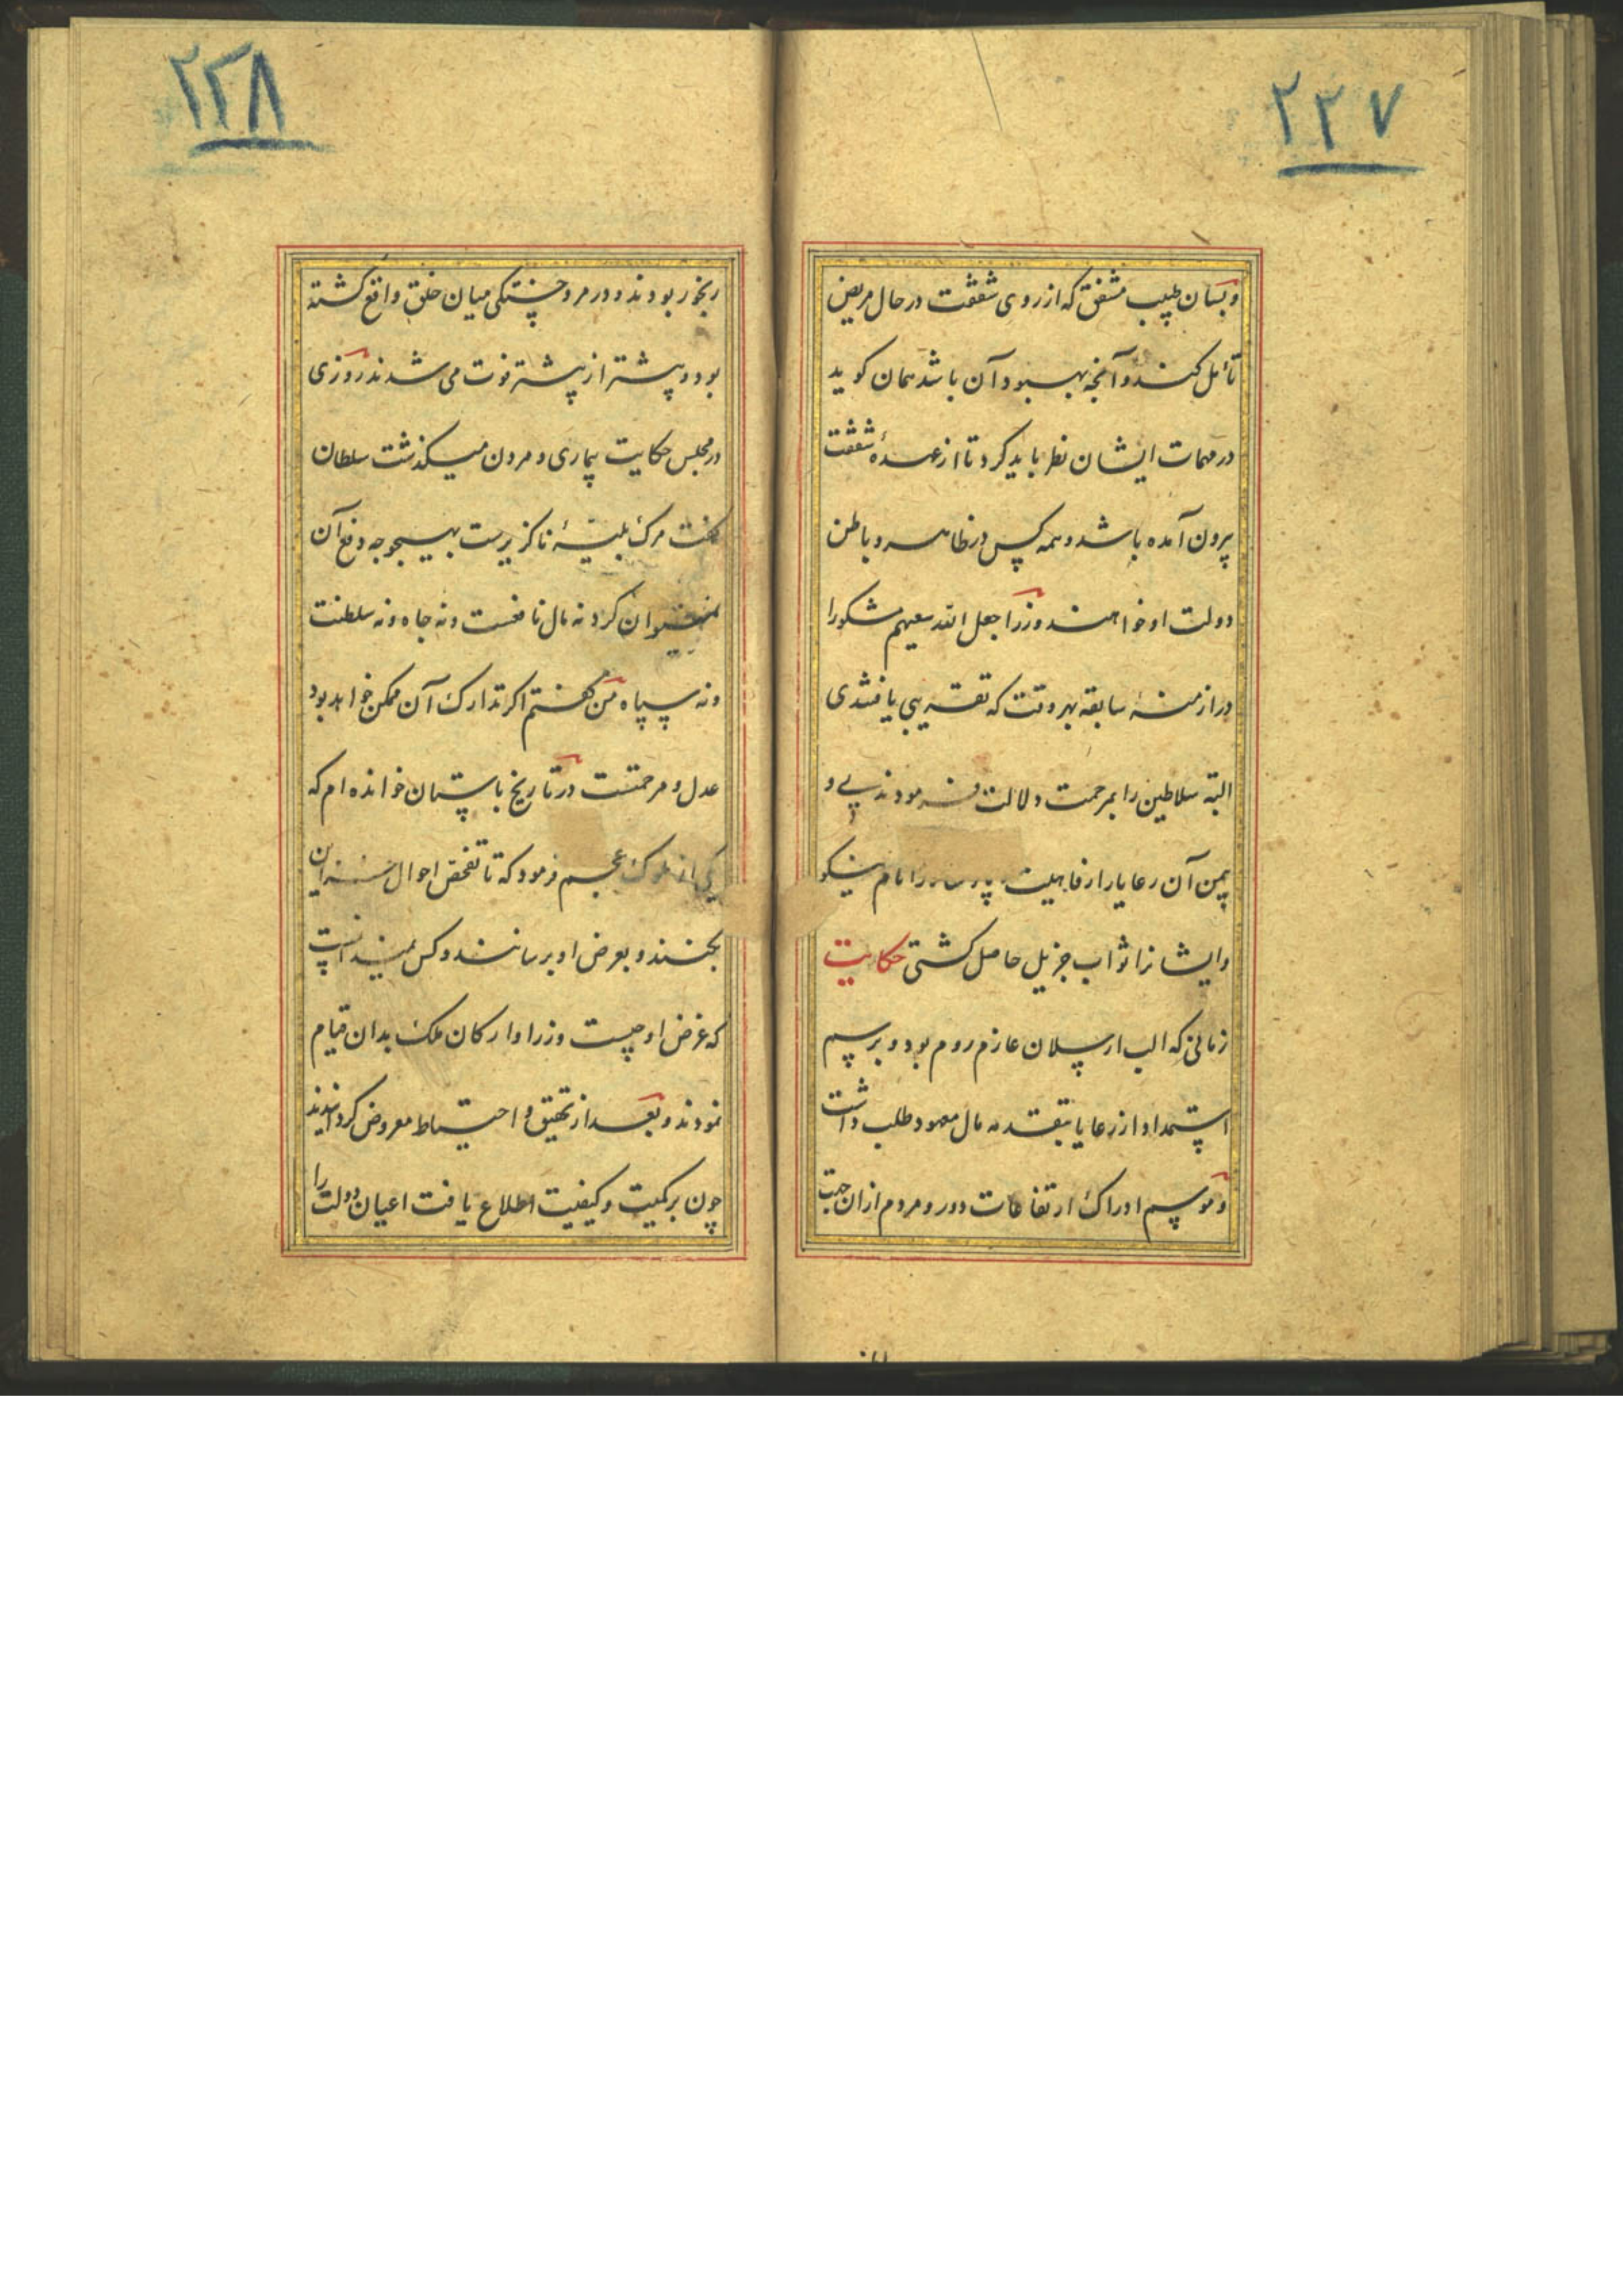 ۲۲۷
وبسان طبیب مشفق که از روی شفقت در حال مریض
تأمل کند و آنچه بهبود آن باشد همان کوید
در مهمات ایشان نظر باید کرد تا از عهدهٔ شفقت
بیرون آمده باشد و همه کس در ظاهر و باطن
دولت او خواهند وزرا جعل الله سعیهم مشکورا
در ازمنهٔ سابقه بهر وقت که تقریبی یافتندی
البته سلاطین را بمرحمت دلالت فرمودندی و
بیمن آن رعایا را رفاهیت و پادشاه را نام نیکو
وایشانرا ثواب جزیل حاصل کشتی حکایت
زمانی که الب ارسلان عازم روم بود و برسم
استمداد از رعایا بتقدمه مال معهود طلب داشت
و موسم ادراک ارتفاعات دور و مردم از ان جهت
۲۲۸
رنجور بودند و در مرو خستکی میان خلق واقع کشته
بود و بیشتر از بیشتر فوت می شدند روزی
در مجلس حکایت بیماری و مردن میکذشت سلطان
کفت مرک بلیهٔ ناکزیرست بهیچوجه دفع آن
نمیتوان کرد نه مال نافعست و نه جاه و نه سلطنت
و نه سپاه من کفتم اکر تدارک آن ممکن خواهد بود
عدل و مرحمتست در تاریخ باستان خوانده ام که
یکی از ملوک عجم فرمود که تا تفحص احوال خزاین
بکنند و بعرض او برسانند و کس نمیدانست
که غرض او چیست وزرا و ارکان ملک بدان قیام
نمودند و بعد از تحقیق و احتیاط معروض کردانیدند
چون بر کمیت و کیفیت اطلاع یافت اعیان دولت را